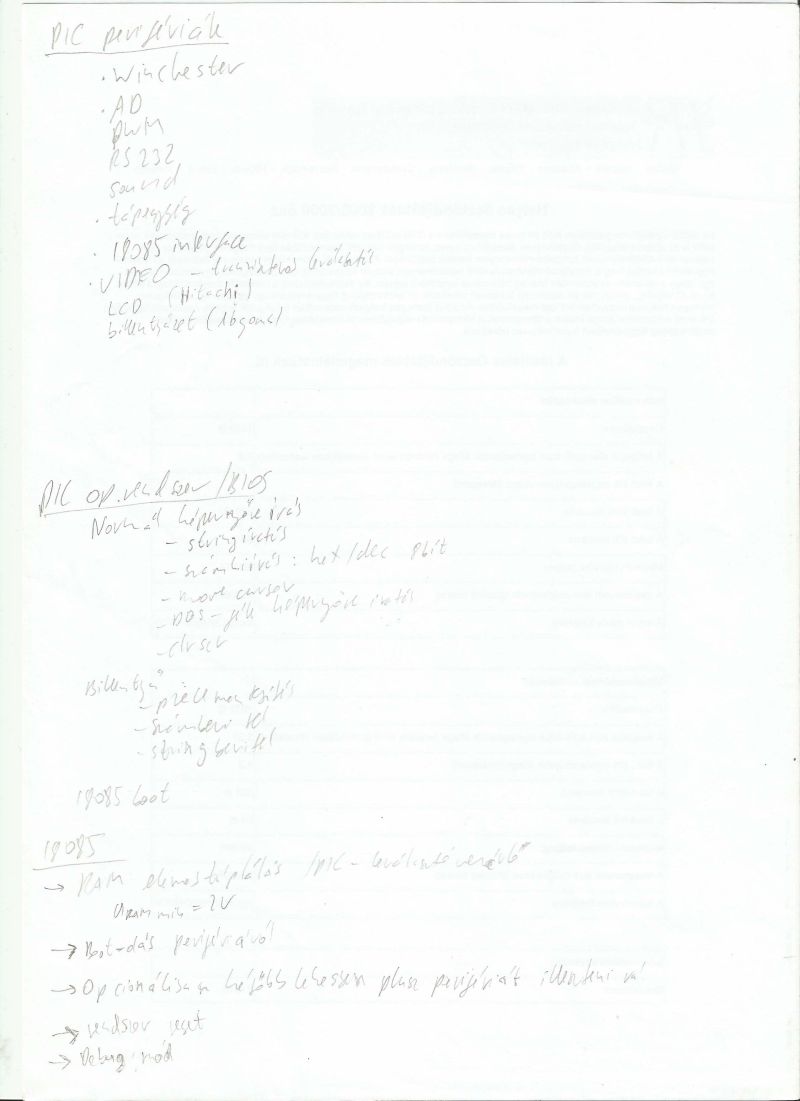 PIC perifériák
· Winchester
· AD
PWM
RS 232
sound
· tápegység
· I8085 interface
· VIDEO - tranzisztoros leválasztó
LCD (Hitachi)
billentyűzet (16gomb)
PIC op.rendszer/BIOS
Normál képernyőre írás
- string iratás
- számkiírás : hex/dec 8bit
- move cursor
- DOS - képernyőre iratás
- clrscr
Billentyű
- számbevitel
- string bevitel
I8085 boot
I8085
→ RAM elemes táplálás /PIC - leválasztó vezérlő
URAM min = 2V
→ Boot-dás perifériáról
→ Opcionálisan később lehessen plusz perifériát illeszteni rá!
→ rendszer reset
→ Debug mód